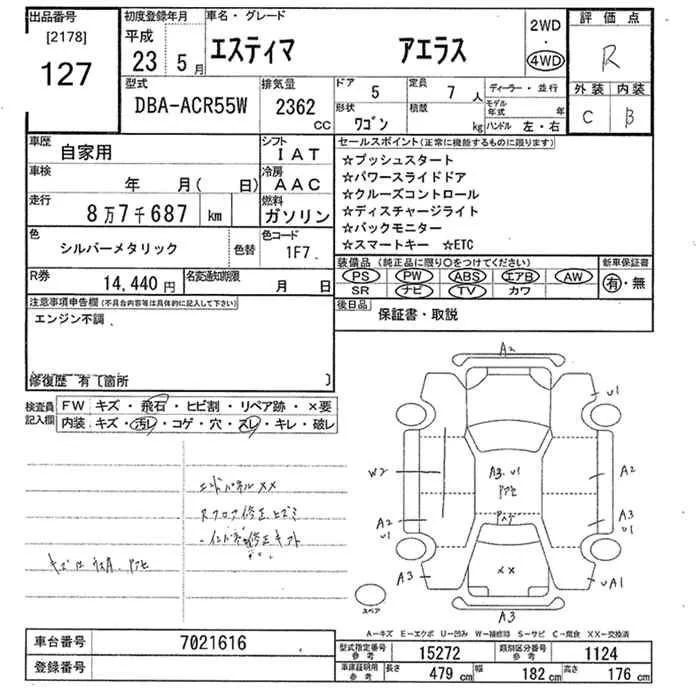 出品番号
[2178]
127
初度登録年月
平成
23 5月
車名・グレード
エスティマ アエラス
2WD
・
4WD
評価点
R
外装 内装
C B
型式
DBA-ACR55W
排気量
2362
cc
ドア
5
定員
7 人
形状
ワゴン
積載
kg
ディーラー・並行
モデル年式 年
ハンドル 左・右
車歴
自家用
シフト
IAT
車検
年 月( 日)
冷房
AAC
走行
8万7千687 km
燃料
ガソリン
色
シルバーメタリック
色替
色コード
1F7
R券
14,440 円
名変通知期限
月 日
セールスポイント(正常に機能するものに限ります)
☆プッシュスタート
☆パワースライドドア
☆クルーズコントロール
☆ディスチャージライト
☆バックモニター
☆スマートキー ☆ETC
装備品(純正品に限り〇をつけてください)
PS PW ABS エアB AW
SR ナビ TV カワ
新車保証書
有・無
後日品
保証書・取説
注意事項申告欄(不具合内容等は具体的に記入して下さい)
エンジン不調
修復歴 有〔箇所 〕
検査員
記入欄
FW キズ・飛石・ヒビ割・リペア跡・×要
内装 キズ・汚レ・コゲ・穴・スレ・キレ・破レ
エンドパネルXX
A2
U1
W2
A3.U1
A2
A2
U1
A3
U1
XX
A3
UA1
A3
スペア
A-キズ E-エクボ U-凹み W-補修跡 S-サビ C-腐食 XX-交換済
車台番号
7021616
登録番号
型式指定番号
参考
15272
類別区分番号
参考
1124
車庫証明用
参考
長さ 479 cm 幅 182 cm 高さ 176 cm